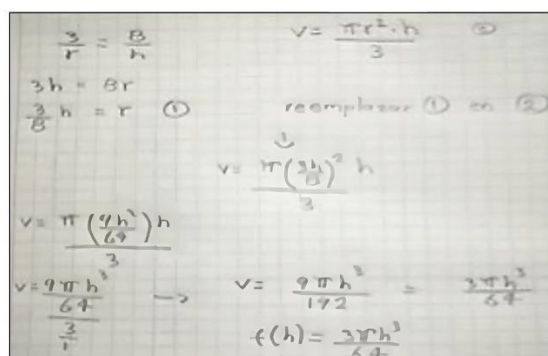 3/r = 8/h
V = πr²·h/3 ②
3h = 8r
3/8 h = r ①
reemplazar ① en ②
V = π(3h/8)² h/3
V = π(9h²/64)h/3
V = 9πh³/64/3/1 → V = 9πh³/192 = 3πh³/64
f(h) = 3πh³/64